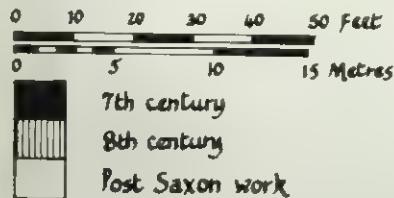 0 10 20 30 40 50 Feet
0 5 10 15 Metres
7th century
8th century
Post Saxon work